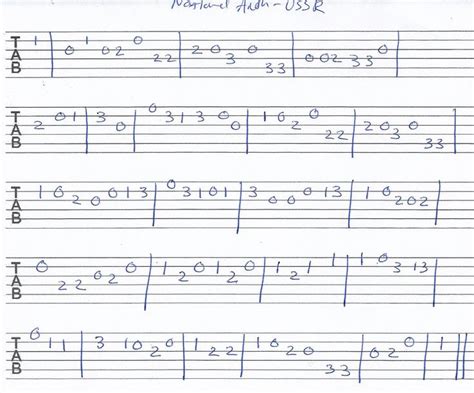 National Anth - USSR
TAB 1 | 0 1 0 2 0 2 2 | 2 0 3 0 3 3 | 0 0 2 3 3 0 |
TAB 2 0 1 | 3 0 | 0 3 1 3 0 0 0 | 1 0 2 0 2 2 | 2 0 3 0 3 3 |
TAB 1 0 2 0 0 1 3 | 0 3 1 0 1 | 3 0 0 0 1 3 | 1 0 2 0 2 |
TAB 0 2 2 0 2 0 | 1 2 0 1 2 0 | 1 2 1 1 | 1 0 3 1 3 |
TAB 0 1 1 | 3 1 0 2 0 | 1 2 2 | 1 0 2 0 3 3 | 0 2 0 | 1 ||